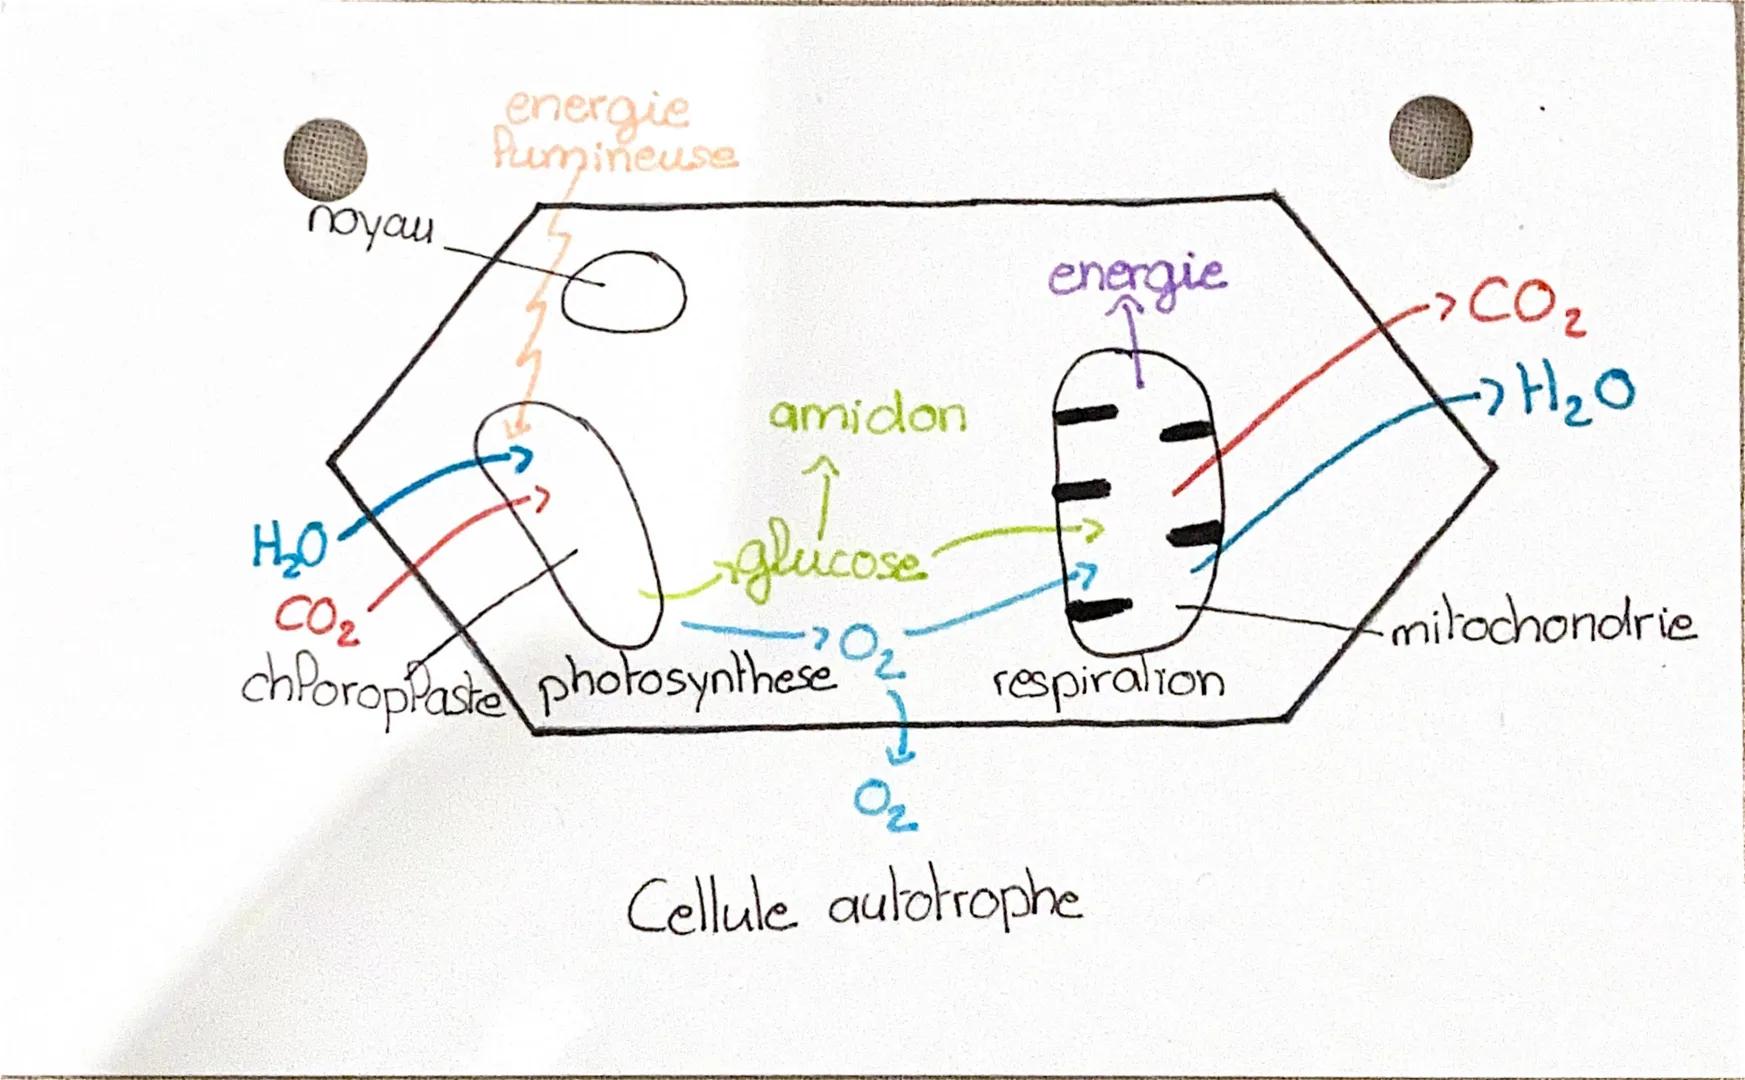 energie
lumineuse
noyau
energie
CO₂
H₂O
amidon
H₂O
glucose
CO₂
O₂
mitochondrie
chloroplaste
photosynthese
respiration
O₂
Cellule autotrophe